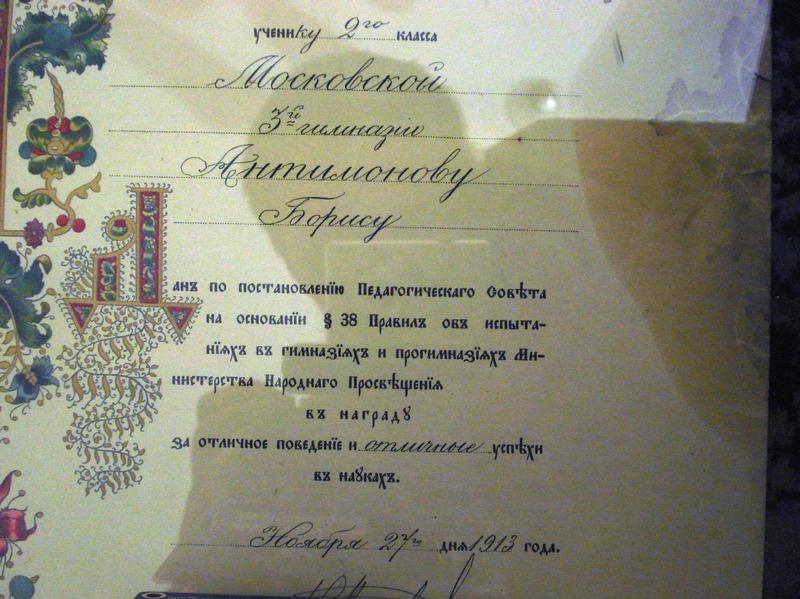 ученику 2го класса
Московской
3й гимназіи
Антимонову
Борису
Данъ по постановленїю Педагогическаго Совѣта
на основанїи § 38 Правилъ объ испыта-
нїяхъ въ гимназїяхъ и прогимназїяхъ Ми-
нистерства Народнаго Просвѣщенїя
въ награду
за отличное поведенїе и отличные успѣхи
въ наукахъ.
Ноября 27го дня 1913 года.